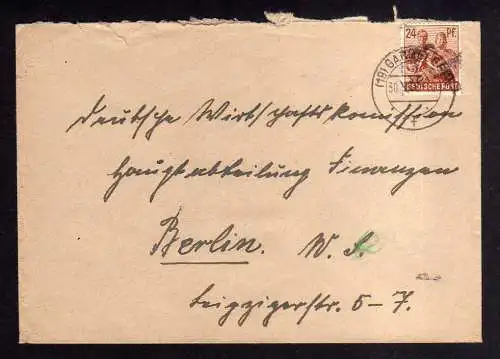 24 Pf.
DEUTSCHE POST
(19)
30.
Deutsche Wirtschaftskommission
Hauptabteilung Finanzen
Berlin. W.
Leipzigerstr. 5-7.